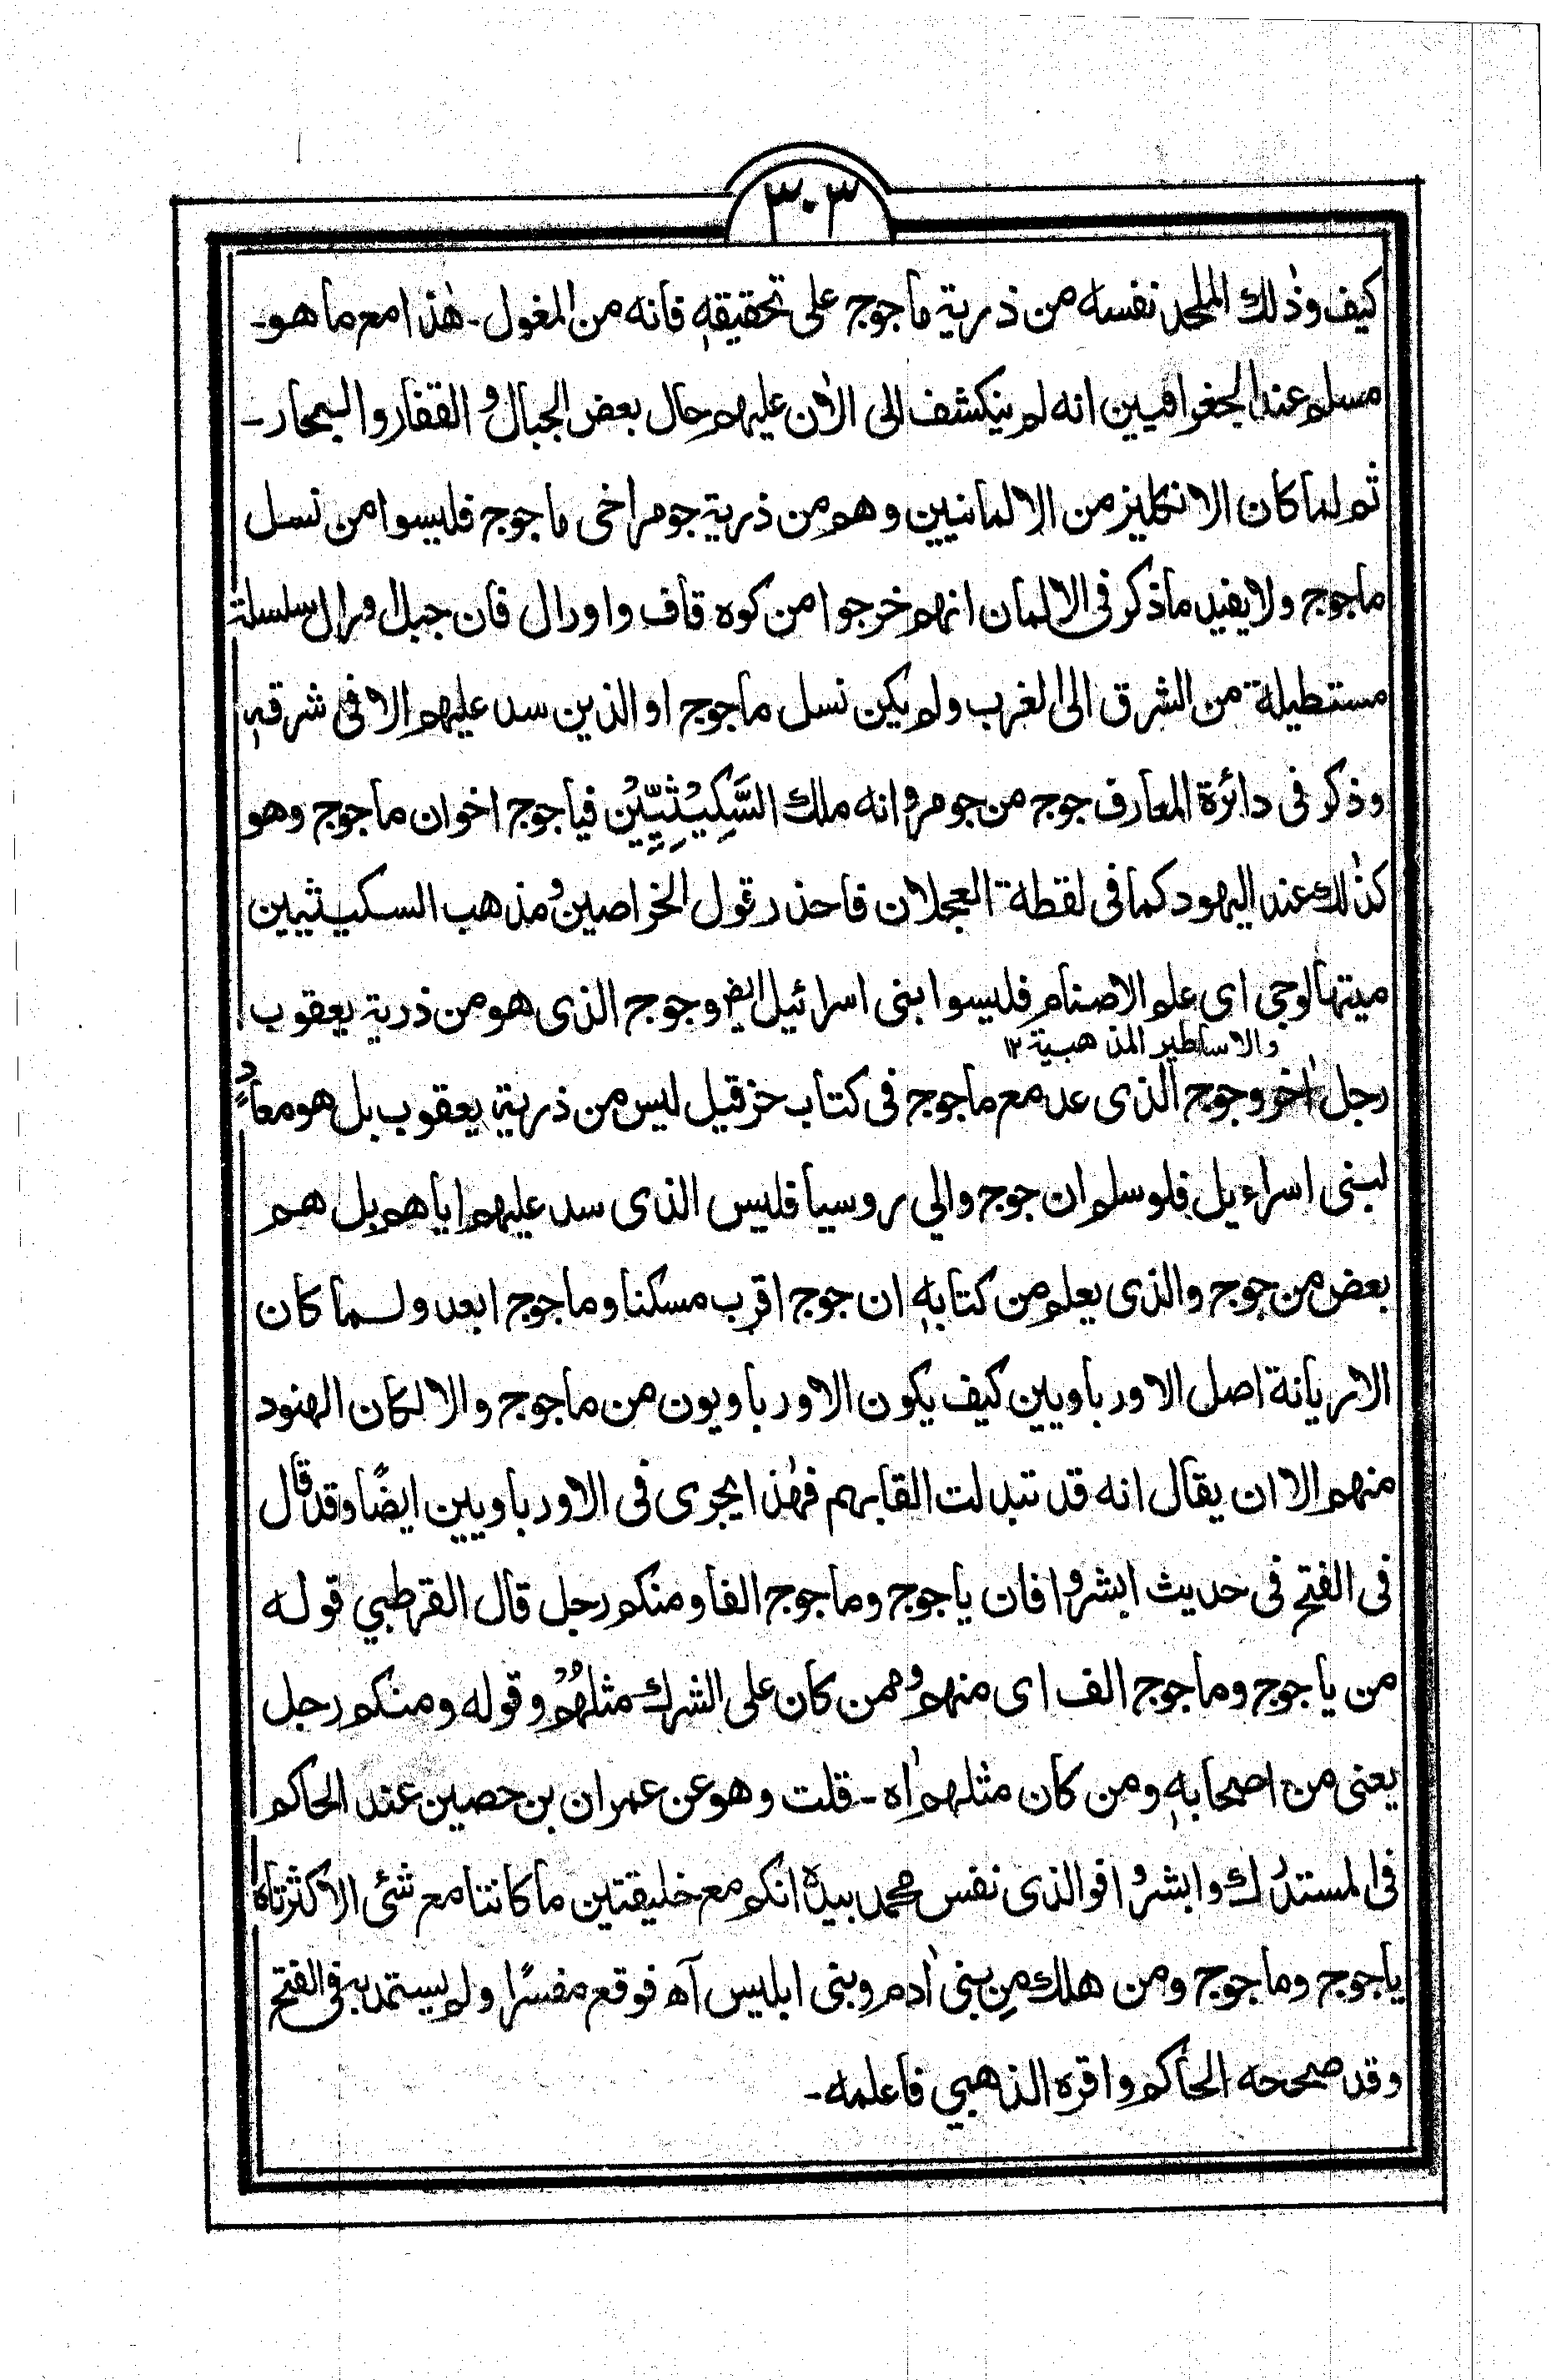 ٣٠٣
كيف وذٰلك الملحد نفسه من ذرية ماجوج على تحقيقهٖ فانه من المغول ـ هٰذا مع ما هو ـ
مسلم عند الجغرافيين انه لم ينكشف الى الاٰن عليهم حال بعض الجبال و القفار والبحار ـ
ثم لما كان الانكليز من الالمانيين وهم من ذرية جومر اخى ماجوج فليسوا من نسل
ماجوج ولا يفيد ما ذكر فى الالمان انهم خرجوا من كوه قاف واورال فان جبل اورال سلسلة
مستطيلة من الشرق الى الغرب ولم يكن نسل ماجوج او الذين سد عليهم الا فى شرقهٖ
وذكر فى دائرة المعارف جوج من جومر وانه ملك السَّكِيْثِيِّيْن فياجوج اخوان ماجوج وهو
كذٰلك عند اليهود كما فى لقطة العجلان فاحذر قول الخراصين و مذهب السكيثيين
ميتهالوجى اى علم الاصنام فليسوا بنى اسرائيل ايض وجوج الذى هو من ذرية يعقوب
والاساطير المذهبية ١٢
رجل اٰخر وجوج الذى عد مع ماجوج فى كتاب حزقيل ليس من ذرية يعقوب بل هو معادٍ
لبنى اسراءيل فلو سلم ان جوج والي روسيا فليس الذى سد عليهم اياهم بل هم
بعض من جوج والذى يعلم من كتابهٖ ان جوج اقرب مسكنا وماجوج ابعد ولما كان
الاريانة اصل الاورباويين كيف يكون الاورباويون من ماجوج والا لكان الهنود
منهم الا ان يقال انه قد تبدلت القابهم فهٰذا يجرى فى الاورباويين ايضًا وقد قال
فى الفتح فى حديث ابشروا فان ياجوج وماجوج الفا ومنكم رجل قال القرطبي قوله
من ياجوج وماجوج الف اى منهم وممن كان على الشرك مثلهُمْ وقوله ومنكم رجل
يعنى من اصحابهٖ ومن كان مثلهم اٰه ـ قلت وهو عن عمران بن حصين عند الحاكم
فى المستدرك وابشروا فوالذى نفس محمد بيده انكم مع خليقتين ما كانتا مع شئى الا كثرتاه
ياجوج وماجوج ومن هلك من بنى اٰدم وبنى ابليس آه فوقع مفسرًا ولم يستمد به فى الفتح
وقد صححه الحاكم واقره الذهبي فاعلمه ـ